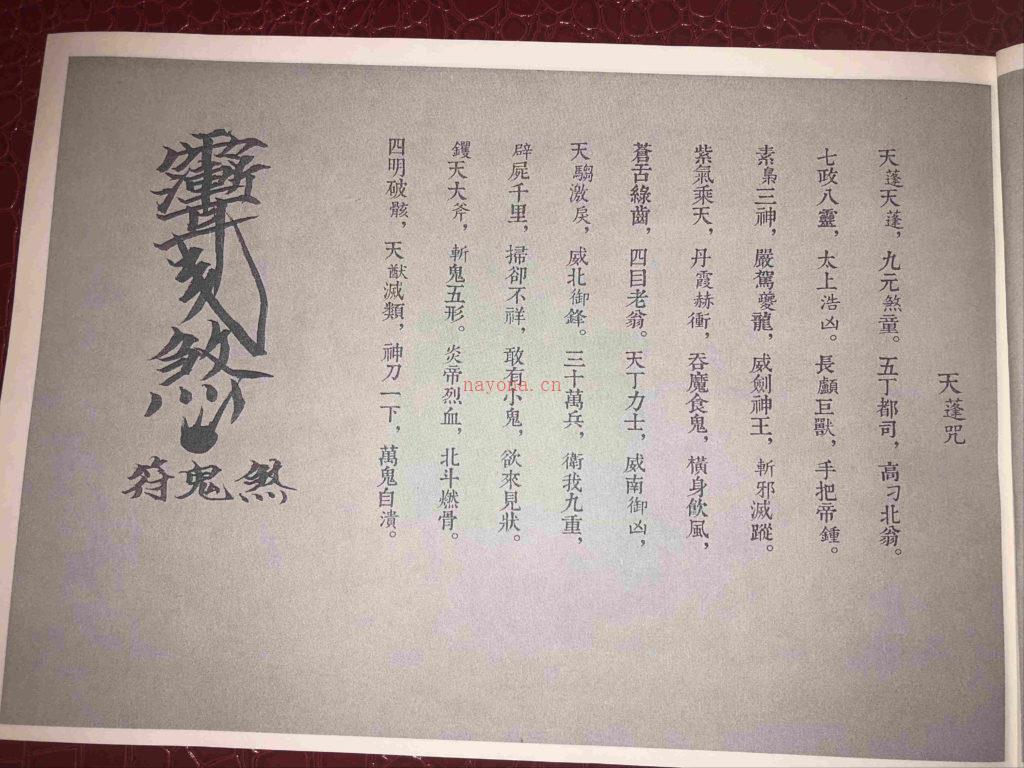 天蓬咒
天蓬天蓬，九元煞童。五丁都司，高刁北翁。
七政八靈，太上浩凶。長顱巨獸，手把帝鍾。
素梟三神，嚴駕夔龍，威劍神王，斬邪滅蹤。
紫氣乘天，丹霞赫衝，吞魔食鬼，橫身飲風，
蒼舌綠齒，四目老翁。天丁力士，威南御凶，
天騶激戾，威北御鋒。三十萬兵，衛我九重，
辟屍千里，掃卻不祥，敢有小鬼，欲來見狀。
钁天大斧，斬鬼五形。炎帝烈血，北斗燃骨。
四明破骸，天猷滅類，神刀一下，萬鬼自潰。
煞
符鬼煞
nayona.cn